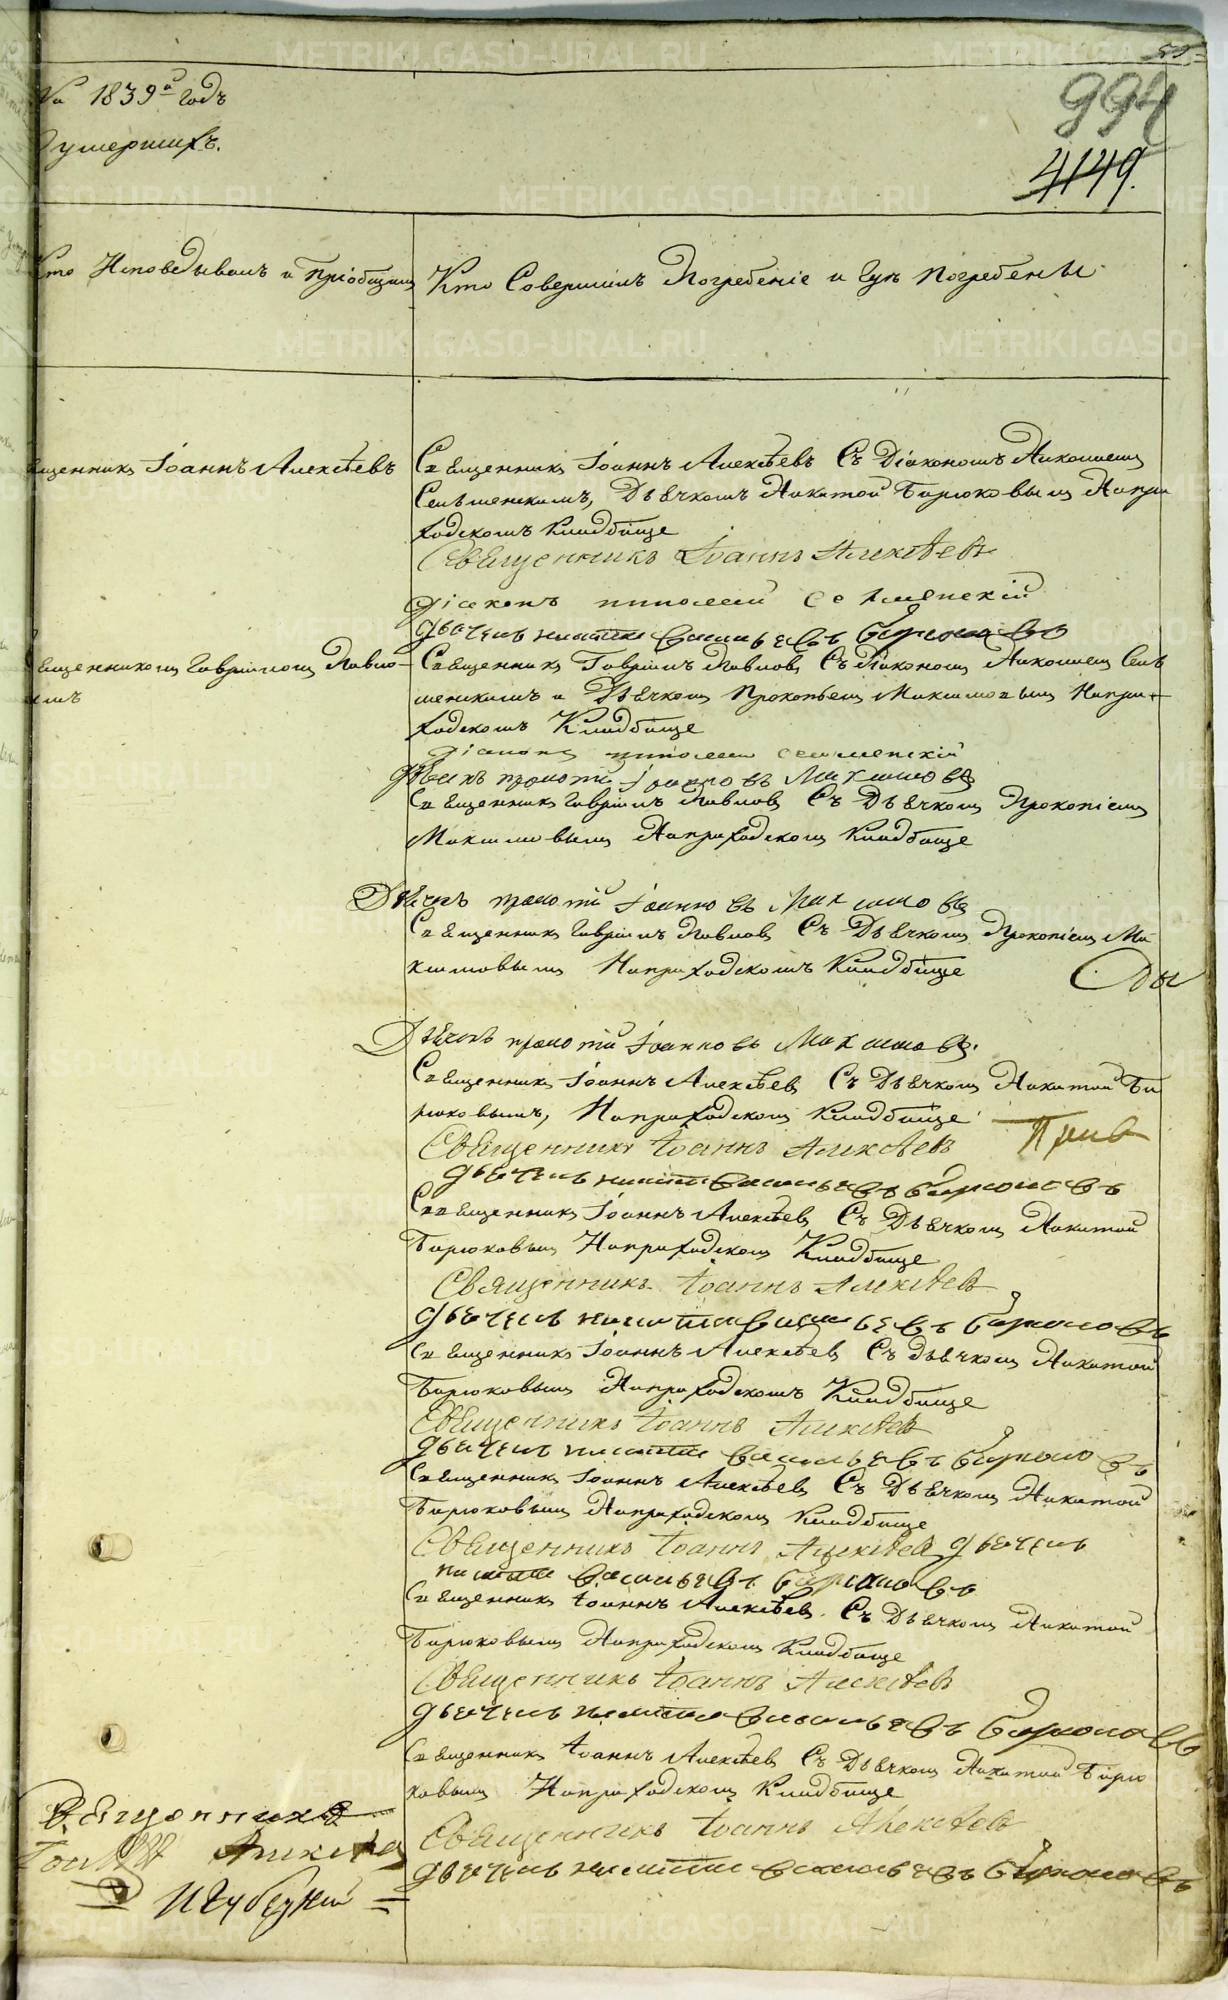 На 1839й годъ
умершихъ.
994
4149.
Кто Исповедывалъ и Пріобщалъ
Кто Совершилъ Погребеніе и Где Погребены
Священникъ Іоаннъ Алексѣевъ
Священникъ Іоаннъ Алексѣевъ Съ Діакономъ Николаемъ
Дьячкомъ Никитой Бирюковымъ На при
ходскомъ Кладбище
Священникъ Іоаннъ Алексѣевъ
Діаконъ Николай
Дьячекъ Никита Васильевъ Бирюковъ
Священникомъ Гавріиломъ Павло-
вымъ
Священникъ Гавріилъ Павловъ Съ Діакономъ Николаемъ
и Дьячкомъ Прокопьемъ Максимовымъ На при-
ходскомъ Кладбище
Діаконъ Николай
Дьячекъ Прокопій Іоанновъ Максимовъ
Священникъ Гавріилъ Павловъ Съ Дьячкомъ Прокопіемъ
Максимовымъ На приходскомъ Кладбище
Дьячекъ Прокопій Іоанновъ Максимовъ
Священникъ Гавріилъ Павловъ Съ Дьячкомъ Прокопіемъ Ма
ксимовымъ На приходскомъ Кладбище
Дьячекъ Прокопій Іоанновъ Максимовъ.
Священникъ Іоаннъ Алексѣевъ Съ Дьячкомъ Никитой Би
рюковымъ, На приходскомъ Кладбище
Священникъ Іоаннъ Алексѣевъ
Дьячекъ Никита Васильевъ Бирюковъ
Священникъ Іоаннъ Алексѣевъ Съ Дьячкомъ Никитой
Бирюковымъ На приходскомъ Кладбище
Священникъ Іоаннъ Алексѣевъ
Дьячекъ Никита Васильевъ Бирюковъ
Священникъ Іоаннъ Алексѣевъ Съ Дьячкомъ Никитой
Бирюковымъ На приходскомъ Кладбище
Священникъ Іоаннъ Алексѣевъ
Дьячекъ Никита Васильевъ Бирюковъ
Священникъ Іоаннъ Алексѣевъ Съ Дьячкомъ Никитой
Бирюковымъ На приходскомъ Кладбище
Священникъ Іоаннъ Алексѣевъ Дьячекъ
Никита Васильевъ Бирюковъ
Священникъ Іоаннъ Алексѣевъ Съ Дьячкомъ Никитой
Бирюковымъ На приходскомъ Кладбище
Священникъ Іоаннъ Алексѣевъ
Дьячекъ Никита Васильевъ Бирюковъ
Священникъ Іоаннъ Алексѣевъ Съ Дьячкомъ Никитой Бирю
ковымъ На приходскомъ Кладбище
Священникъ Іоаннъ Алексѣевъ
Дьячекъ Никита Васильевъ Бирюковъ
METRIKI.GASO-URAL.RU